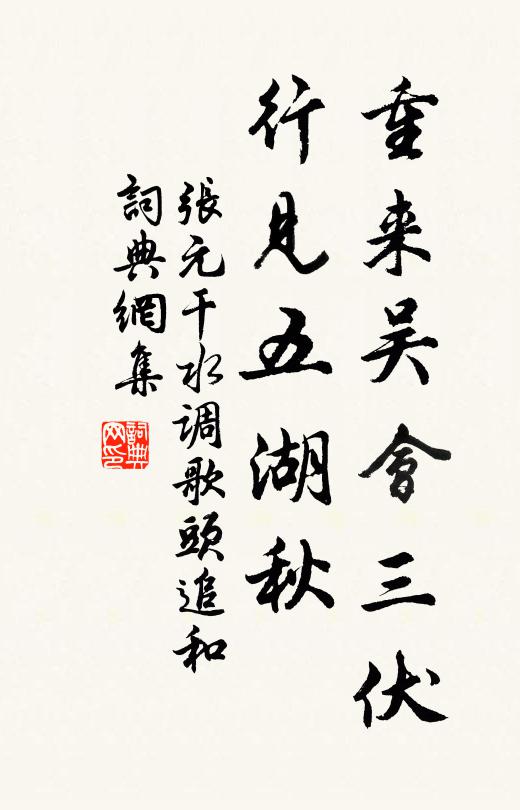 重来吴會三伏
行見五湖秋
張元干水调歌頭追和
詞典網集
詞典网印